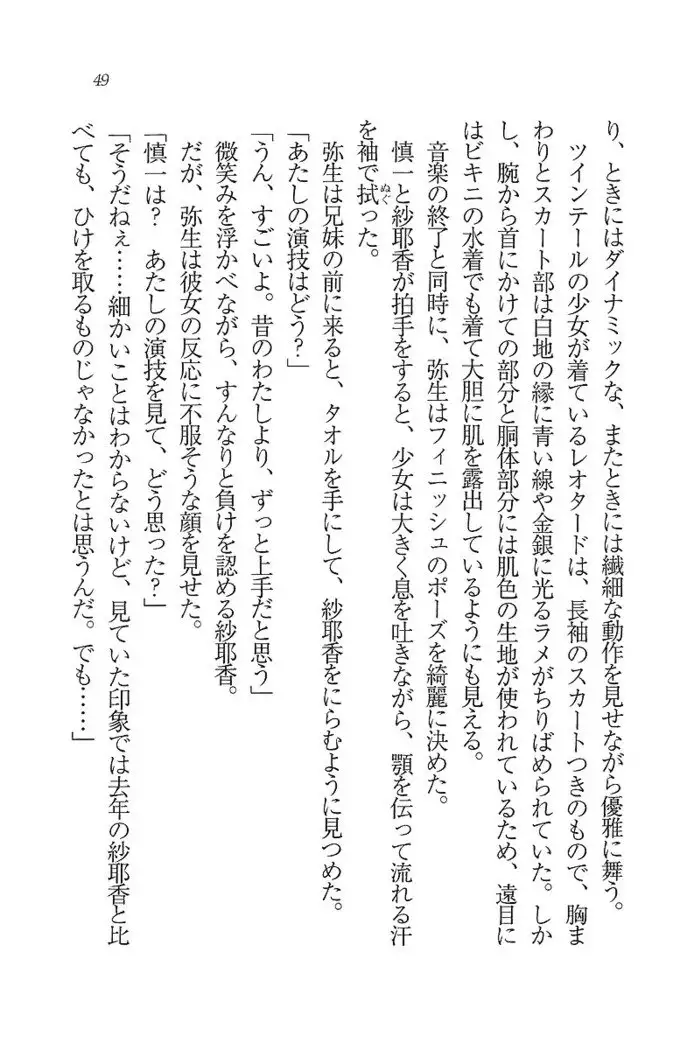 49
り、ときにはダイナミックな、またときには繊細な動作を見せながら優雅に舞う。
ツインテールの少女が着ているレオタードは、長袖のスカートつきのもので、胸ま
わりとスカート部は白地の縁に青い線や金銀に光るラメがちりばめられていた。しか
し、腕から首にかけての部分と胴体部分には肌色の生地が使われているため、遠目に
はビキニの水着でも着て大胆に肌を露出しているようにも見える。
音楽の終了と同時に、弥生はフィニッシュのポーズを綺麗に決めた。
慎一と紗耶香が拍手をすると、少女は大きく息を吐きながら、顎を伝って流れる汗
を袖で拭ぬぐった。
弥生は兄妹の前に来ると、タオルを手にして、紗耶香をにらむように見つめた。
「あたしの演技はどう？」
「うん、すごいよ。昔のわたしより、ずっと上手だと思う」
微笑みを浮かべながら、すんなりと負けを認める紗耶香。
だが、弥生は彼女の反応に不服そうな顔を見せた。
「慎一は？　あたしの演技を見て、どう思った？」
「そうだねぇ……細かいことはわからないけど、見ていた印象では去年の紗耶香と比
べても、ひけを取るものじゃなかったとは思うんだ。でも……」